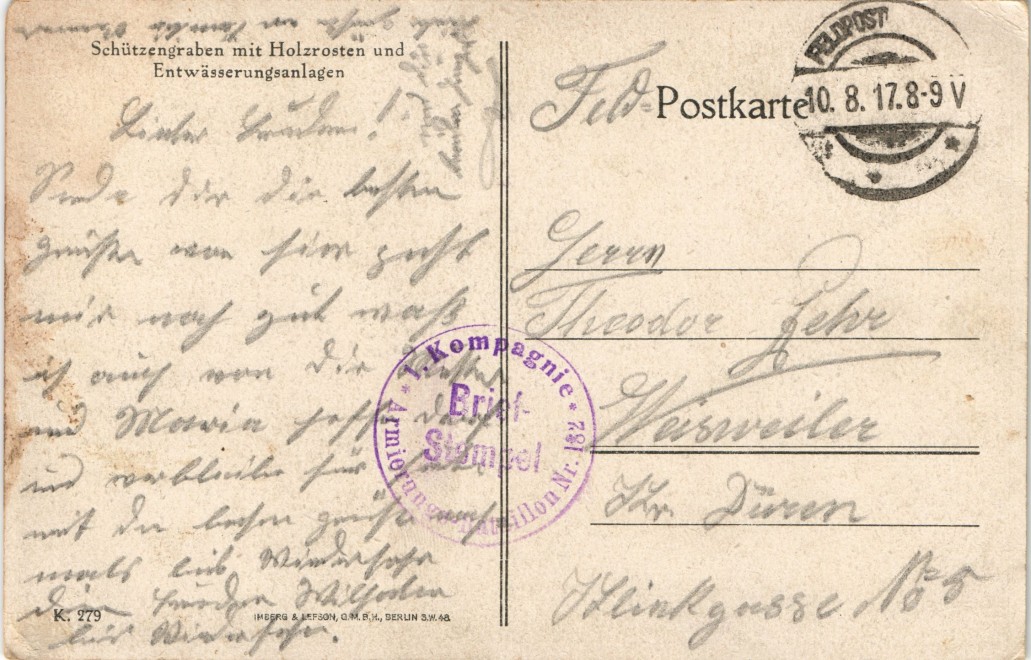 Schützengraben mit Holzrosten und
Entwässerungsanlagen
Lieber Bruder!
Sende dir die besten
Grüße von hier geht
mir noch gut was
ich auch von dir
und Maria hoffe
und verbleibe für
mit den besten Grüßen noch
mals bis Wiedersehn
dein Bruder Wilhelm
bis Wiedersehn.
K. 279
IMBERG & LEFSON, G.M.B.H., BERLIN S.W.48
Feld-Postkarte
FELDPOST
10. 8. 17. 8-9 V
Herrn
Theodor Fehr
Weisweiler
Kr. Düren
Klinkgasse No 5
1. Kompagnie
Brief-
Stempel
Armierungs-Bataillon Nr. 182